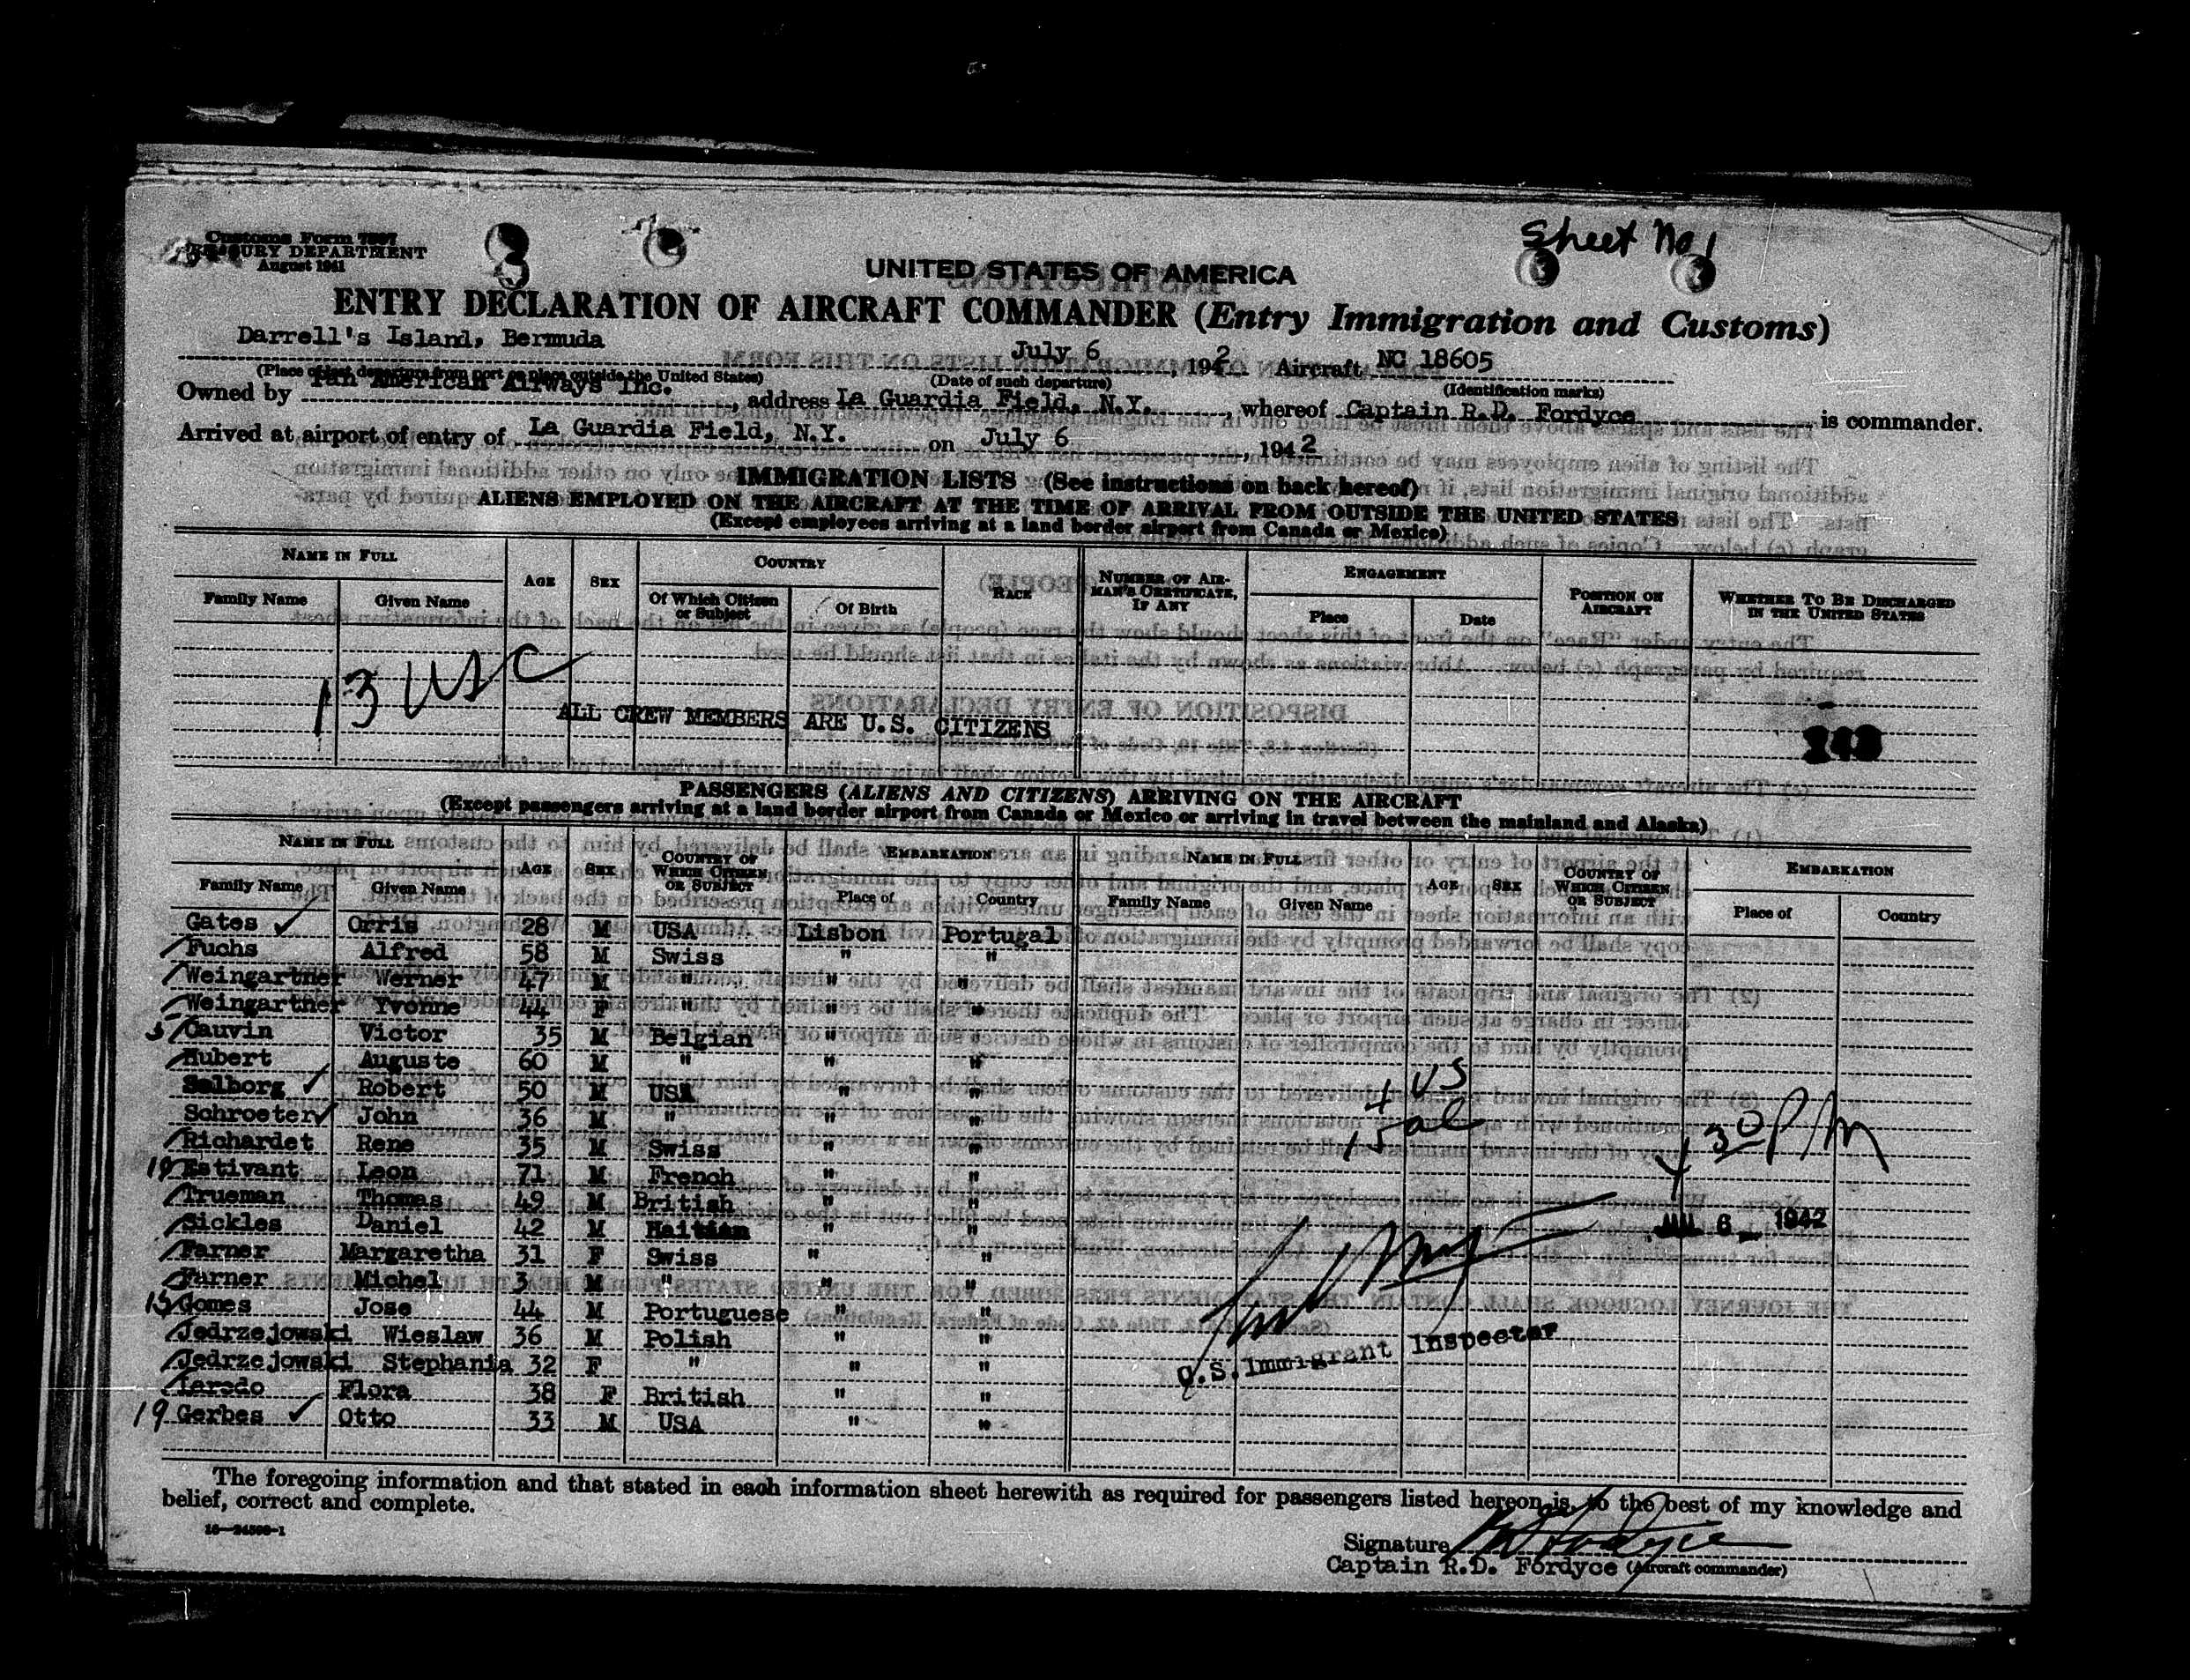 Sheet No 1
Customs Form 7507
TREASURY DEPARTMENT
August 1941
3
UNITED STATES OF AMERICA
ENTRY DECLARATION OF AIRCRAFT COMMANDER (Entry Immigration and Customs)
Darrell's Island, Bermuda July 6, 1942 Aircraft NC 18605
(Place of last departure from port or place outside the United States) (Date of such departure) (Identification marks)
Owned by Pan American Airways Inc., address La Guardia Field, N.Y., whereof Captain R.D. Fordyce is commander.
Arrived at airport of entry of La Guardia Field, N.Y. on July 6, 1942
IMMIGRATION LISTS (See instructions on back hereof)
ALIENS EMPLOYED ON THE AIRCRAFT AT THE TIME OF ARRIVAL FROM OUTSIDE THE UNITED STATES
(Except employees arriving at a land border airport from Canada or Mexico)
NAME IN FULL AGE SEX COUNTRY RACE NUMBER OF AIRMAN'S CERTIFICATE, IF ANY ENGAGEMENT POSITION ON AIRCRAFT WHETHER TO BE DISCHARGED IN THE UNITED STATES
Family Name Given Name Of Which Citizen or Subject Of Birth Place Date
13 USC
ALL CREW MEMBERS ARE U.S. CITIZENS
PASSENGERS (ALIENS AND CITIZENS) ARRIVING ON THE AIRCRAFT
(Except passengers arriving at a land border airport from Canada or Mexico or arriving in travel between the mainland and Alaska)
NAME IN FULL AGE SEX COUNTRY OF WHICH CITIZEN OR SUBJECT EMBARKATION NAME IN FULL AGE SEX COUNTRY OF WHICH CITIZEN OR SUBJECT EMBARKATION
Family Name Given Name Place of Country Family Name Given Name Place of Country
Gates Orris 28 M USA Lisbon Portugal
Fuchs Alfred 58 M Swiss " "
Weingartner Werner 47 M " " "
Weingartner Yvonne 44 F " " "
5 Cauvin Victor 35 M Belgian " "
Hubert Auguste 60 M " " "
Solborg Robert 50 M USA " "
Schroeter John 36 M " " "
Richardet Rene 35 M Swiss " "
10 Estivant Leon 71 M French " "
Trueman Thomas 49 M British " "
Sickles Daniel 42 M Haitian " "
Farner Margaretha 31 F Swiss " "
Farner Michel 3 M " " "
15 Gomes Jose 44 M Portuguese " "
Jedrzejowski Wieslaw 36 M Polish " "
Jedrzejowski Stephania 32 F " " "
Flora 38 F British " "
19 Gerbes Otto 33 M USA " "
4 US
15 al
4 30 PM
JUL 6 - 1942
U.S. Immigrant Inspector
The foregoing information and that stated in each information sheet herewith as required for passengers listed hereon is, to the best of my knowledge and
belief, correct and complete.
Signature R D Fordyce
Captain R.D. Fordyce (Aircraft commander)